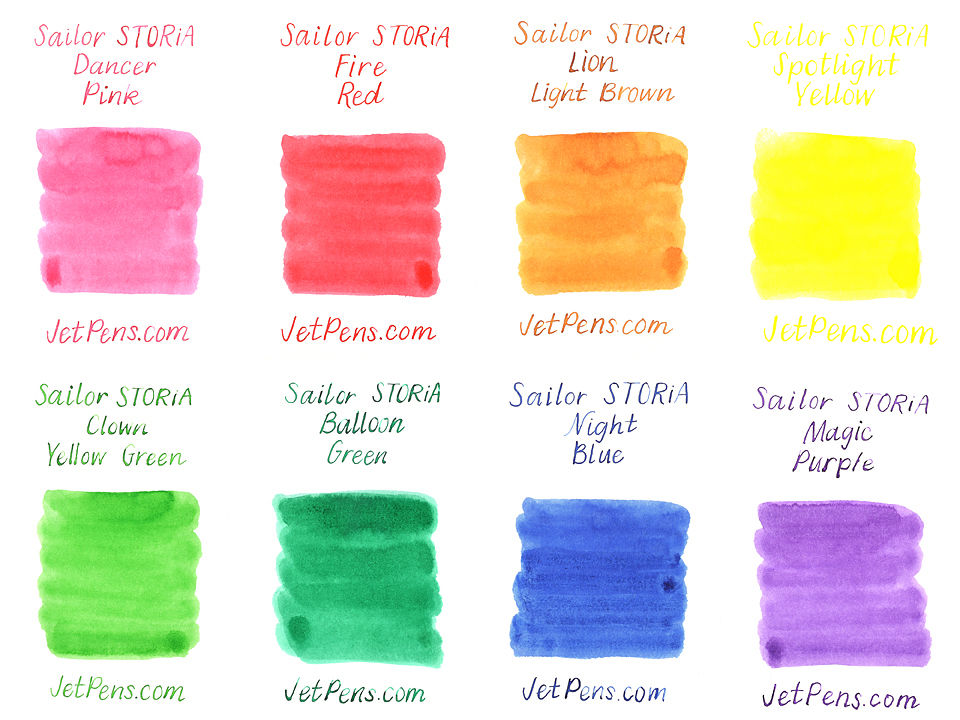 Sailor STORiA
Dancer
Pink
JetPens.com
Sailor STORiA
Fire
Red
JetPens.com
Sailor STORiA
Lion
Light Brown
JetPens.com
Sailor STORiA
Spotlight
Yellow
JetPens.com
Sailor STORiA
Clown
Yellow Green
JetPens.com
Sailor STORiA
Balloon
Green
JetPens.com
Sailor STORiA
Night
Blue
JetPens.com
Sailor STORiA
Magic
Purple
JetPens.com